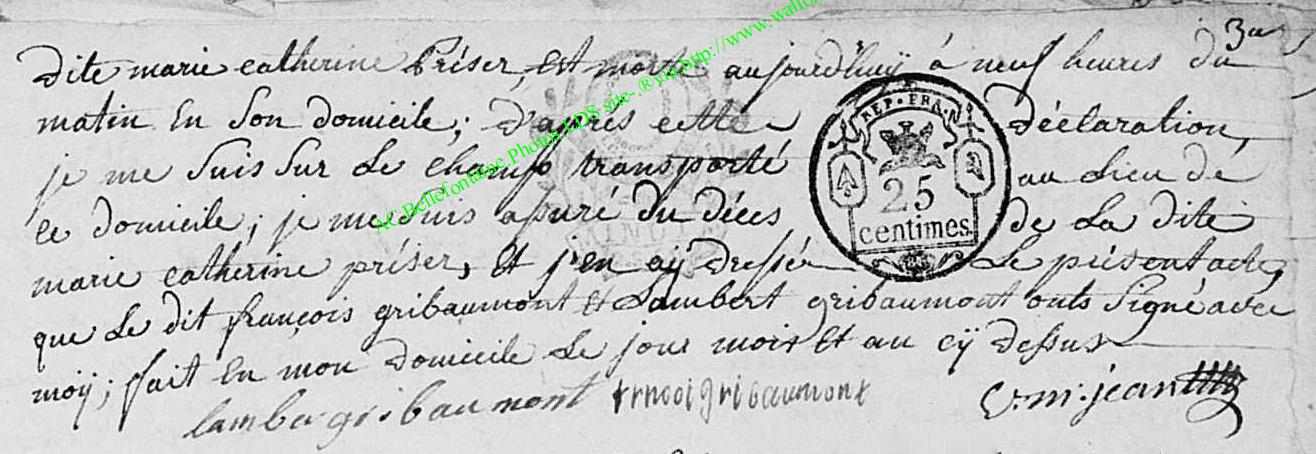 dite marie catherine Préser, est morte aujourd'huÿ à neuf heures du
matin en son domicile; d'après cette déclaration
je me suis sur le champ transporté au lieu dé
ce domicile; je me suis assuré du décés de la dite
marie catherine préser, et j'en aÿ dressér le présent acte,
que le dit françois gribaumont et Lambert gribaumont onts signé avec
moÿ; fait en mon domicile le jour mois et an cÿ dessus
lamber gribaumont gribaumont jean
REP. FRA.
25
centimes.
AC Bellefontaine Photos